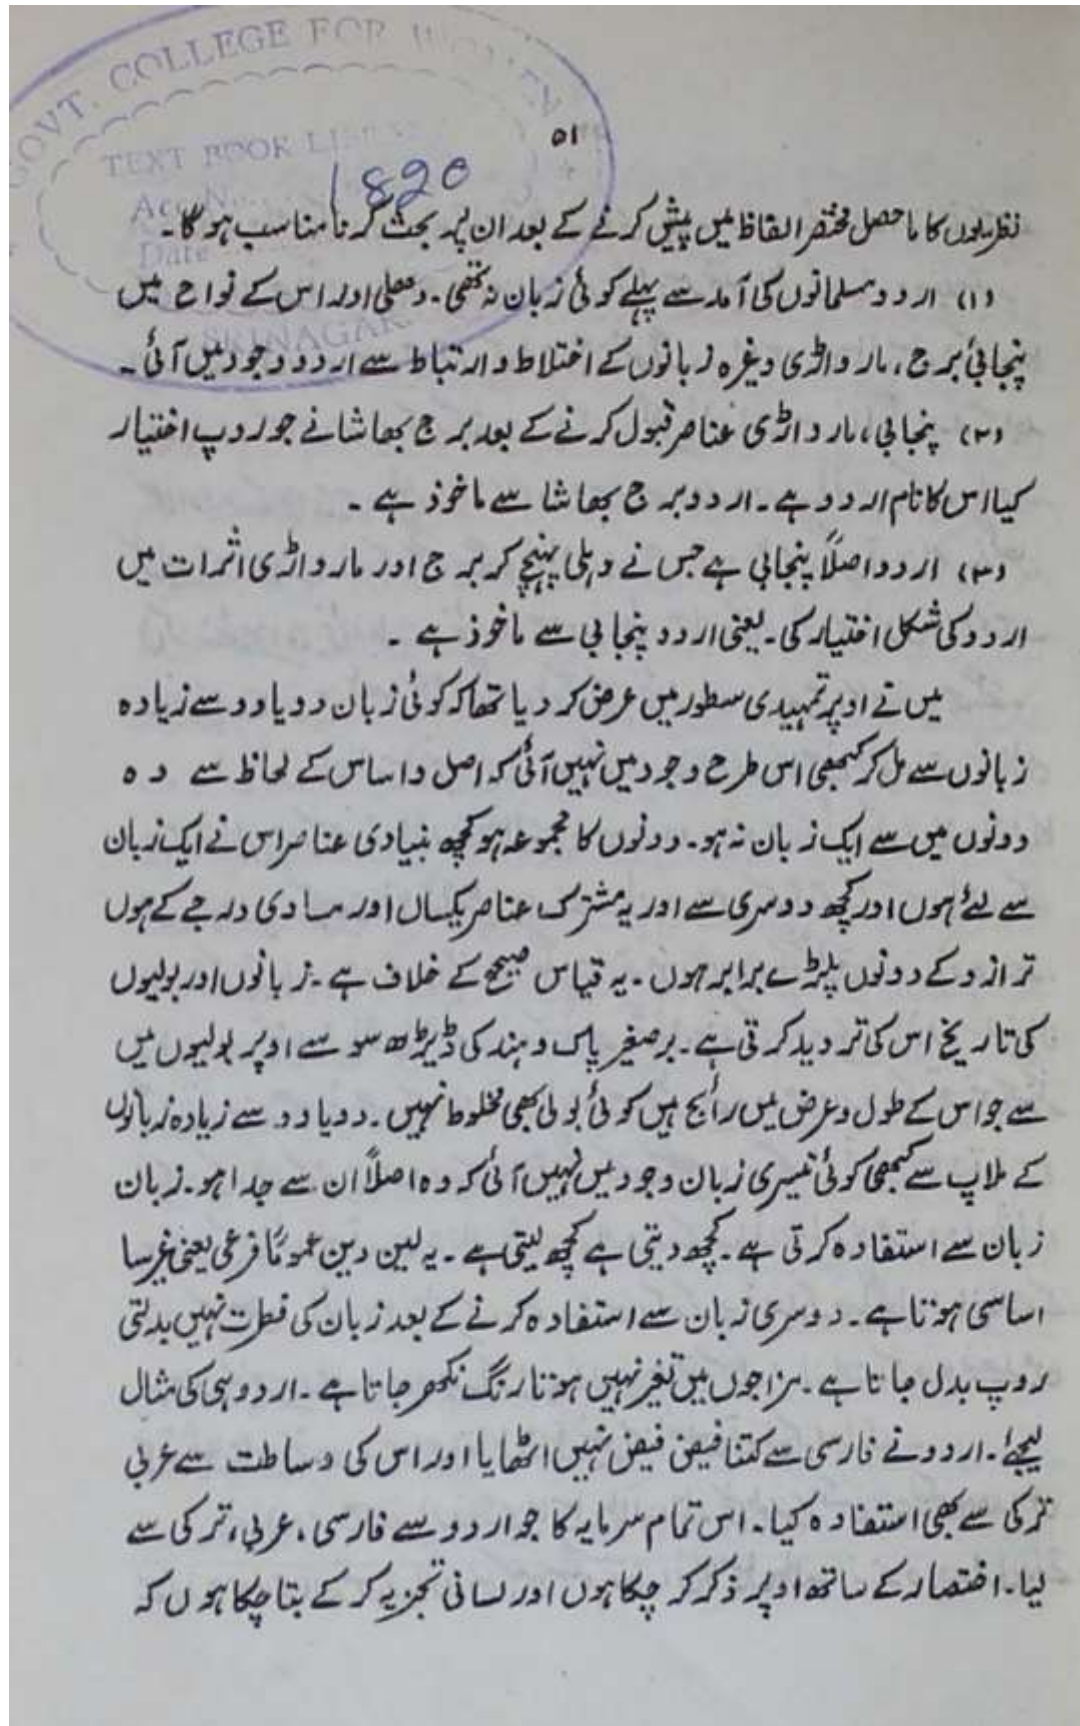 GOVT. COLLEGE FOR WOMEN
TEXT BOOK LIBRARY
Acc No. 1820
Date
SRINAGAR
۵۱
نظریوں کا ماحصل مختصر الفاظ میں پیش کرنے کے بعد ان پر بحث کرنا مناسب ہوگا۔
(۱) اردو مسلمانوں کی آمد سے پہلے کوئی زبان نہ تھی۔ دہلی اور اس کے نواح میں
پنجابی برج، مارواڑی وغیرہ زبانوں کے اختلاط و ارتباط سے اردو وجود میں آئی۔
(۲) پنجابی، مارواڑی عناصر قبول کرنے کے بعد برج بھاشا نے جو روپ اختیار
کیا اس کا نام اردو ہے۔ اردو برج بھاشا سے ماخوذ ہے۔
(۳) اردو اصلاً پنجابی ہے جس نے دہلی پہنچ کر برج اور مارواڑی اثرات میں
اردو کی شکل اختیار کی۔ یعنی اردو پنجابی سے ماخوذ ہے۔
میں نے اوپر تمہیدی سطور میں عرض کر دیا تھا کہ کوئی زبان دو یا دو سے زیادہ
زبانوں سے مل کر کبھی اس طرح وجود میں نہیں آئی کہ اصل و اساس کے لحاظ سے وہ
دونوں میں سے ایک زبان نہ ہو۔ دونوں کا مجموعہ ہو کچھ بنیادی عناصر اس نے ایک زبان
سے لئے ہوں اور کچھ دوسری سے اور یہ مشترک عناصر یکساں اور مساوی درجے کے ہوں
ترازو کے دونوں پلڑے برابر ہوں۔ یہ قیاس صحیح کے خلاف ہے۔ زبانوں اور بولیوں
کی تاریخ اس کی تردید کرتی ہے۔ برصغیر پاک و ہند کی ڈیڑھ سو سے اوپر بولیوں میں
سے جو اس کے طول و عرض میں رائج ہیں کوئی بولی بھی مخلوط نہیں۔ دو یا دو سے زیادہ زبانوں
کے ملاپ سے کبھی کوئی تیسری زبان وجود میں نہیں آئی کہ وہ اصلاً ان سے جدا ہو۔ زبان
زبان سے استفادہ کرتی ہے۔ کچھ دیتی ہے کچھ لیتی ہے۔ یہ لین دین عموماً فرعی یعنی غیر سا
اساسی ہوتا ہے۔ دوسری زبان سے استفادہ کرنے کے بعد زبان کی فطرت نہیں بدلتی
روپ بدل جاتا ہے۔ مزاجوں میں تغیر نہیں ہوتا رنگ نکھر جاتا ہے۔ اردو ہی کی مثال
لیجئے۔ اردو نے فارسی سے کتنا فیض فیض نہیں اٹھایا اور اس کی وساطت سے عربی
ترکی سے بھی استفادہ کیا۔ اس تمام سرمایہ کا جو اردو سے فارسی، عربی، ترکی سے
لیا۔ اختصار کے ساتھ اوپر ذکر کر چکا ہوں اور لسانی تجزیہ کر کے بتا چکا ہوں کہ